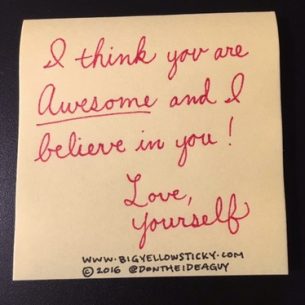 I think you are
Awesome and I
believe in you!
Love,
yourself
WWW.BIGYELLOWSTICKY.COM
© 2016 @DONTHEIDEAGUY